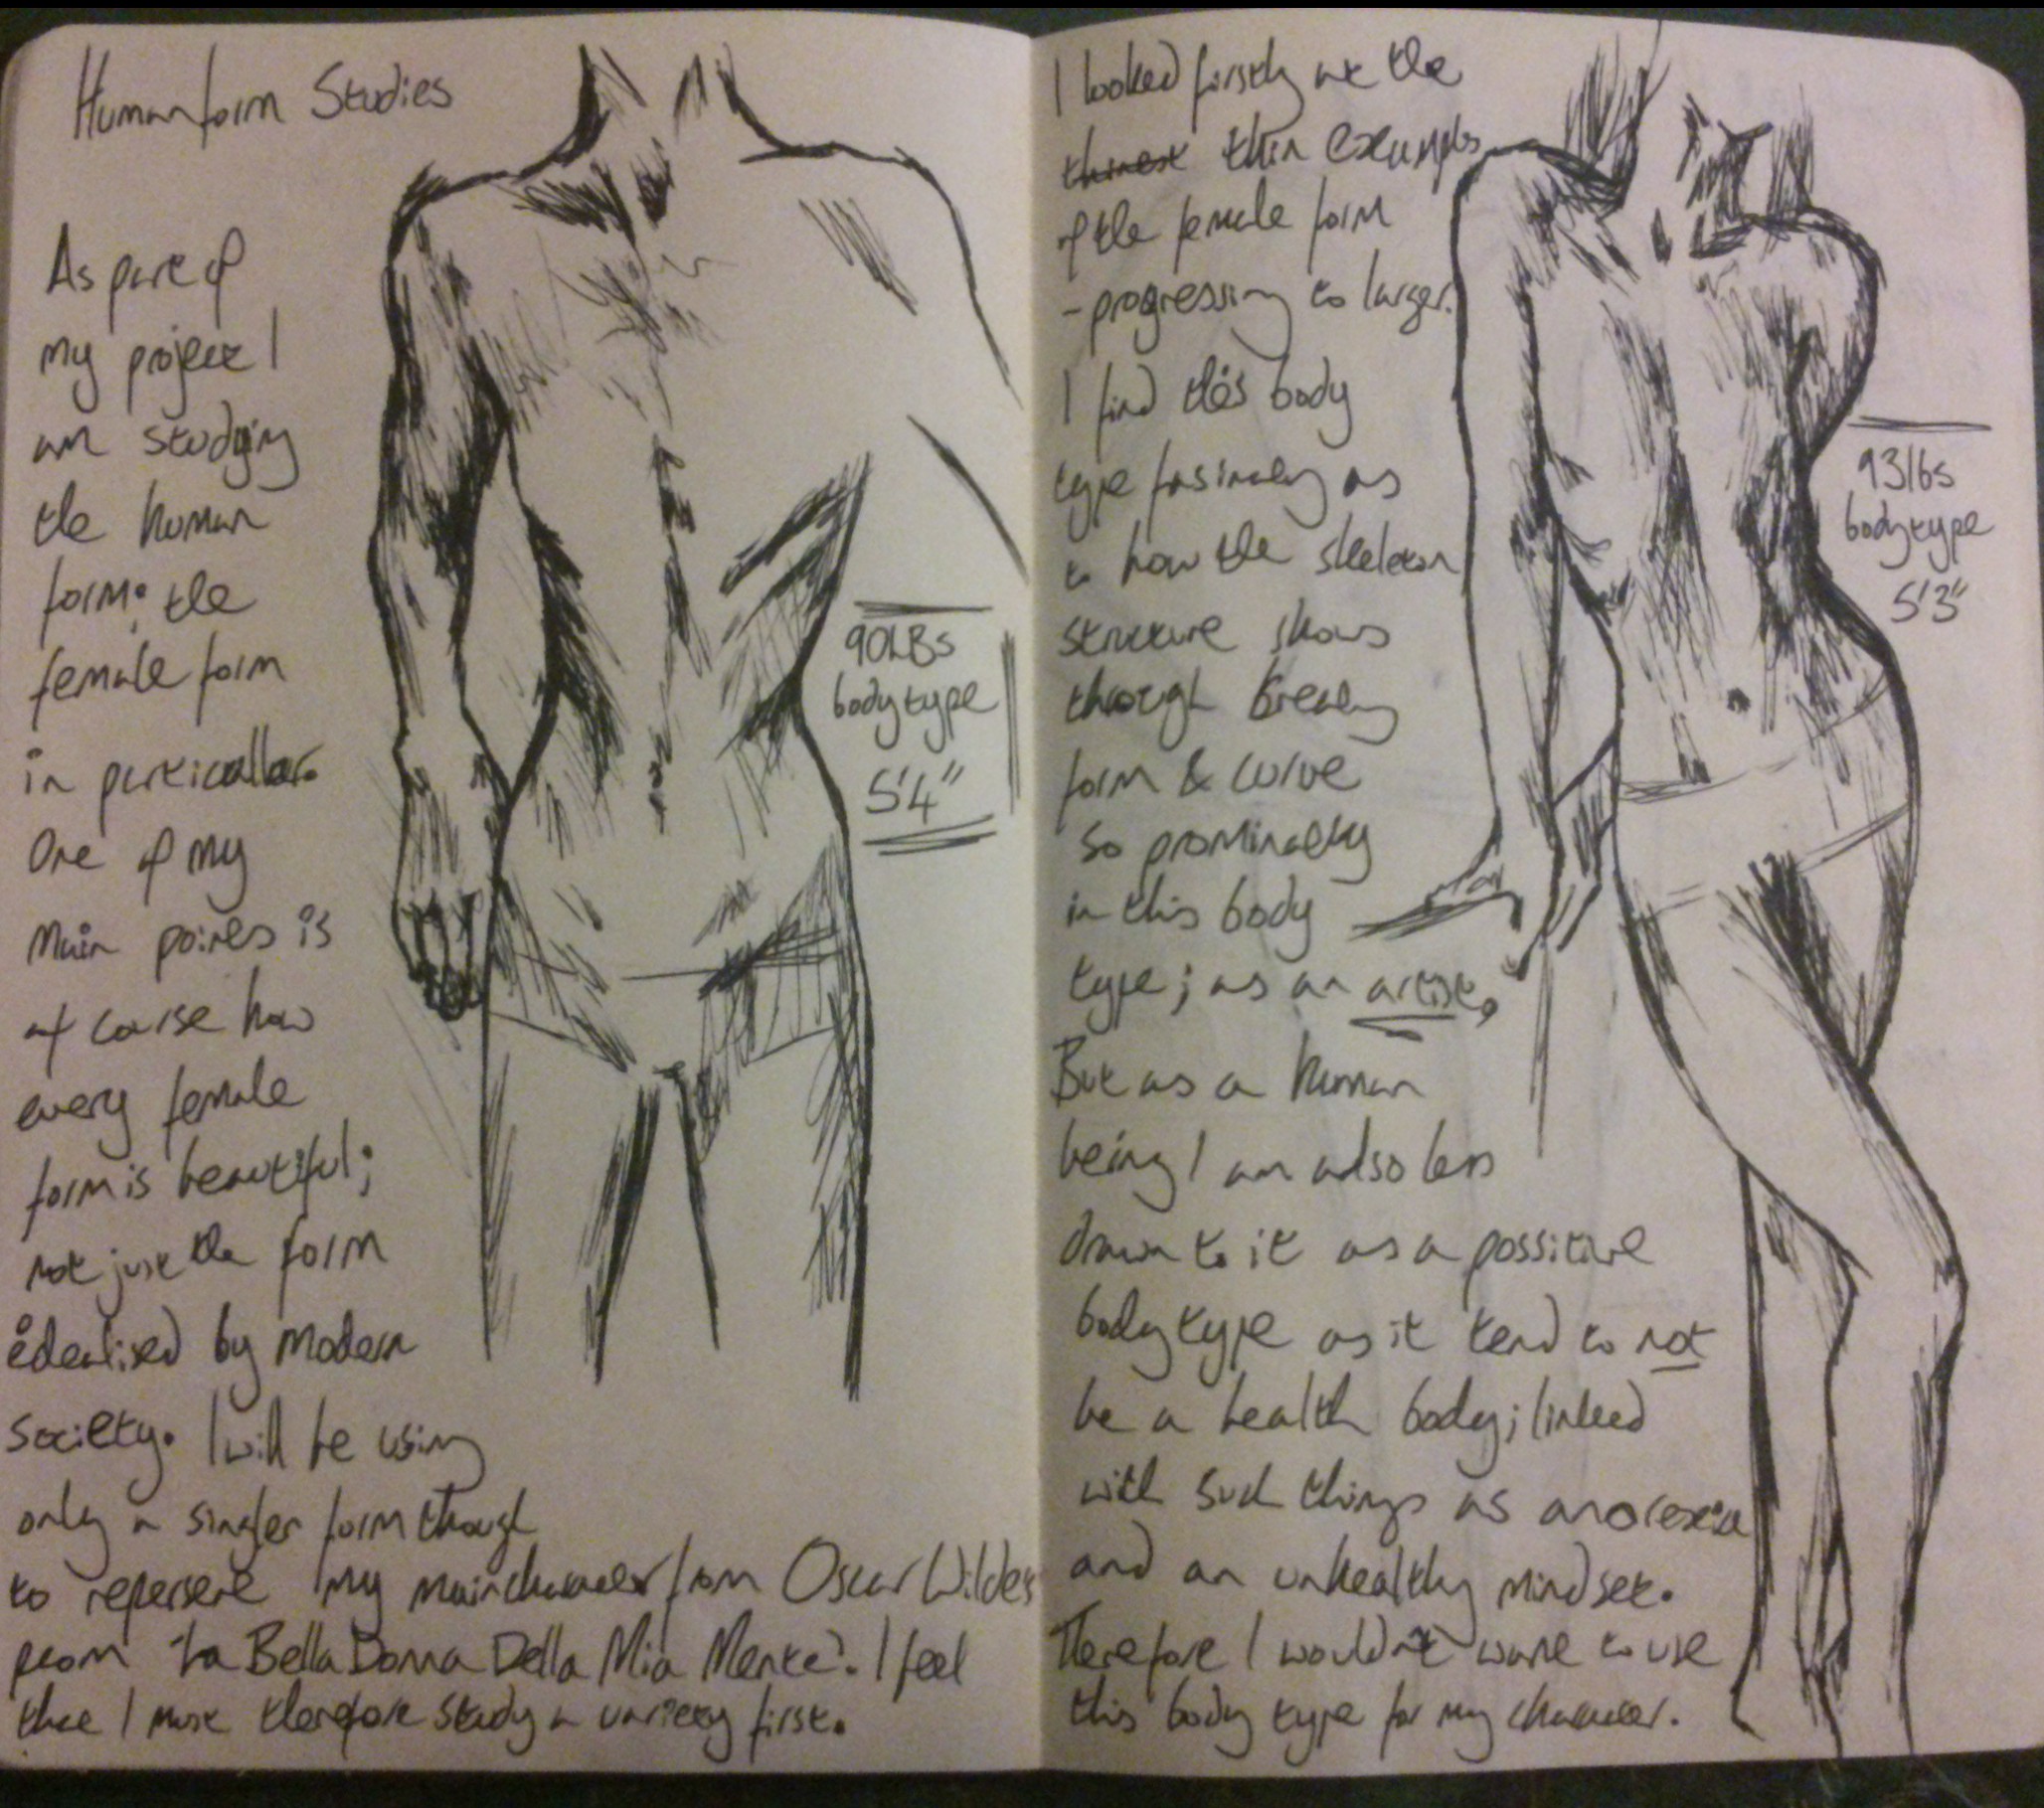 Human form Studies
As part of
my project I
am studying
the human
form; the
female form
in particullar.
One of my
main points is
of course how
every female
form is beautiful;
not just the form
idealised by modern
society. I will be using
only a singler form though
to repersent my main character from Oscar Wildes
peom 'La Bella Donna Della Mia Mente'. I feel
that I must therefore study a variety first.
90LBs
body type
5'4"
I looked firstly at the
thinest thin examples
of the female form
- progressing to larger.
I find this body
type fasinating as
to how the skeleton
structure shows
through breaking
form & curve
so prominatly
in this body
type; as an artist,
But as a human
being I am also less
drawn to it as a possitive
body type as it tend to not
be a health body; linked
with such things as anorexia
and an unhealthy mindset.
Therefore I wouldn't want to use
this body type for my character.
93lbs
body type
5'3"